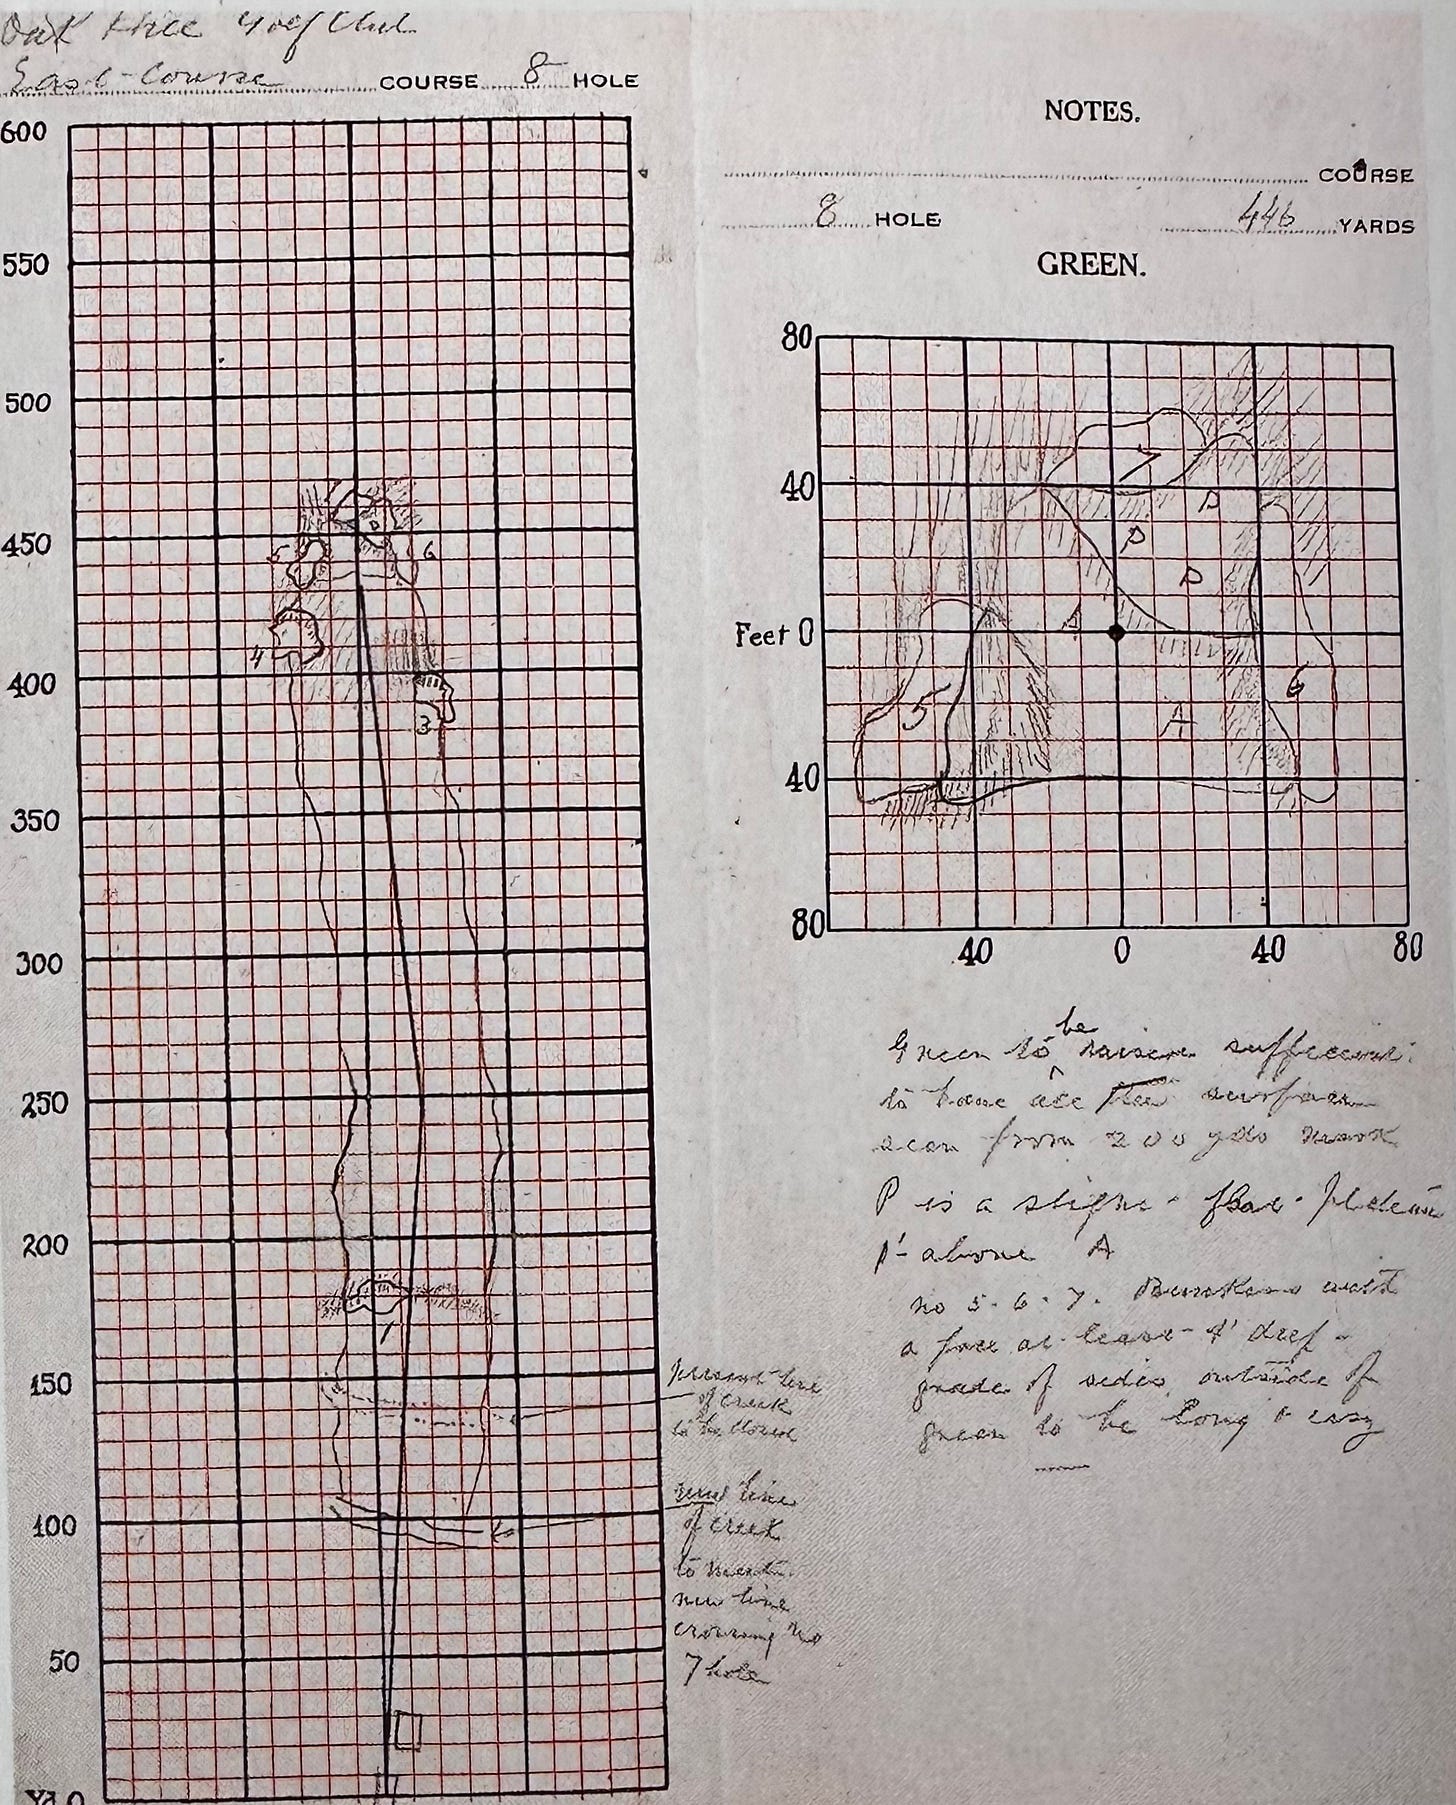 Oak Hill Golf Club
East Course COURSE 8 HOLE
600
550
500
450
400
350
300
250
200
150
100
50
Yd. 0
5
6
4
3
1
present line
of creek
to be closed
new line
of creek
to meet
new line
crossing no
7 hole
NOTES.
COURSE
8 HOLE 446 YARDS
GREEN.
80
40
Feet 0
40
80
40 0 40 80
7
P
P
P
A
5
6
A
Green to be raised sufficient
to have all the surface
seen from 200 yds mark
P is a slight flat plateau
1'- above A
no 5. 6. 7. Bunkers with
a face at least 4' deep -
grade of sides outside of
green to be long & easy